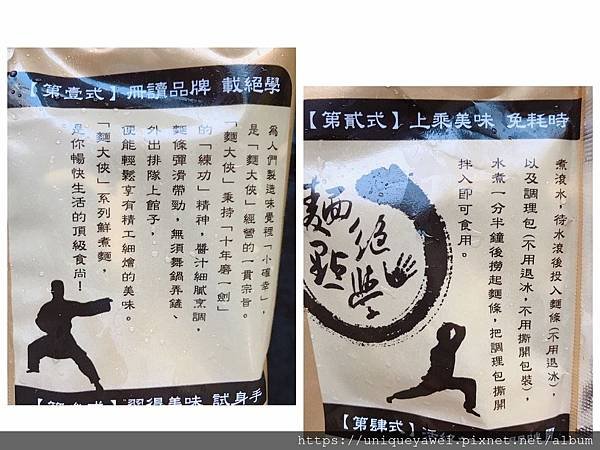 【第壹式】冊讀品牌 載絕學
為人們製造味覺裡「小確幸」,
是「麵大俠」經營的一貫宗旨。
「麵大俠」秉持「十年磨一劍」
的「練功」精神,醬汁細膩烹調,
麵條彈滑帶勁,無須舞鍋弄鏟、
外出排隊上館子,
便能輕鬆享有精工細燴的美味。
「麵大俠」系列鮮煮麵,
是你暢快生活的頂級食尚!
習得美味 試身手
【第貳式】上乘美味 免耗時
煮滾水,待水滾後投入麵條(不用退冰),
以及調理包(不用退冰,不用撕開包裝),
水煮一分半鐘後撈起麵條,把調理包撕開
拌入即可食用。
麵點絕學
【第肆式】
https://uniqueyawei.pixnet.net/album